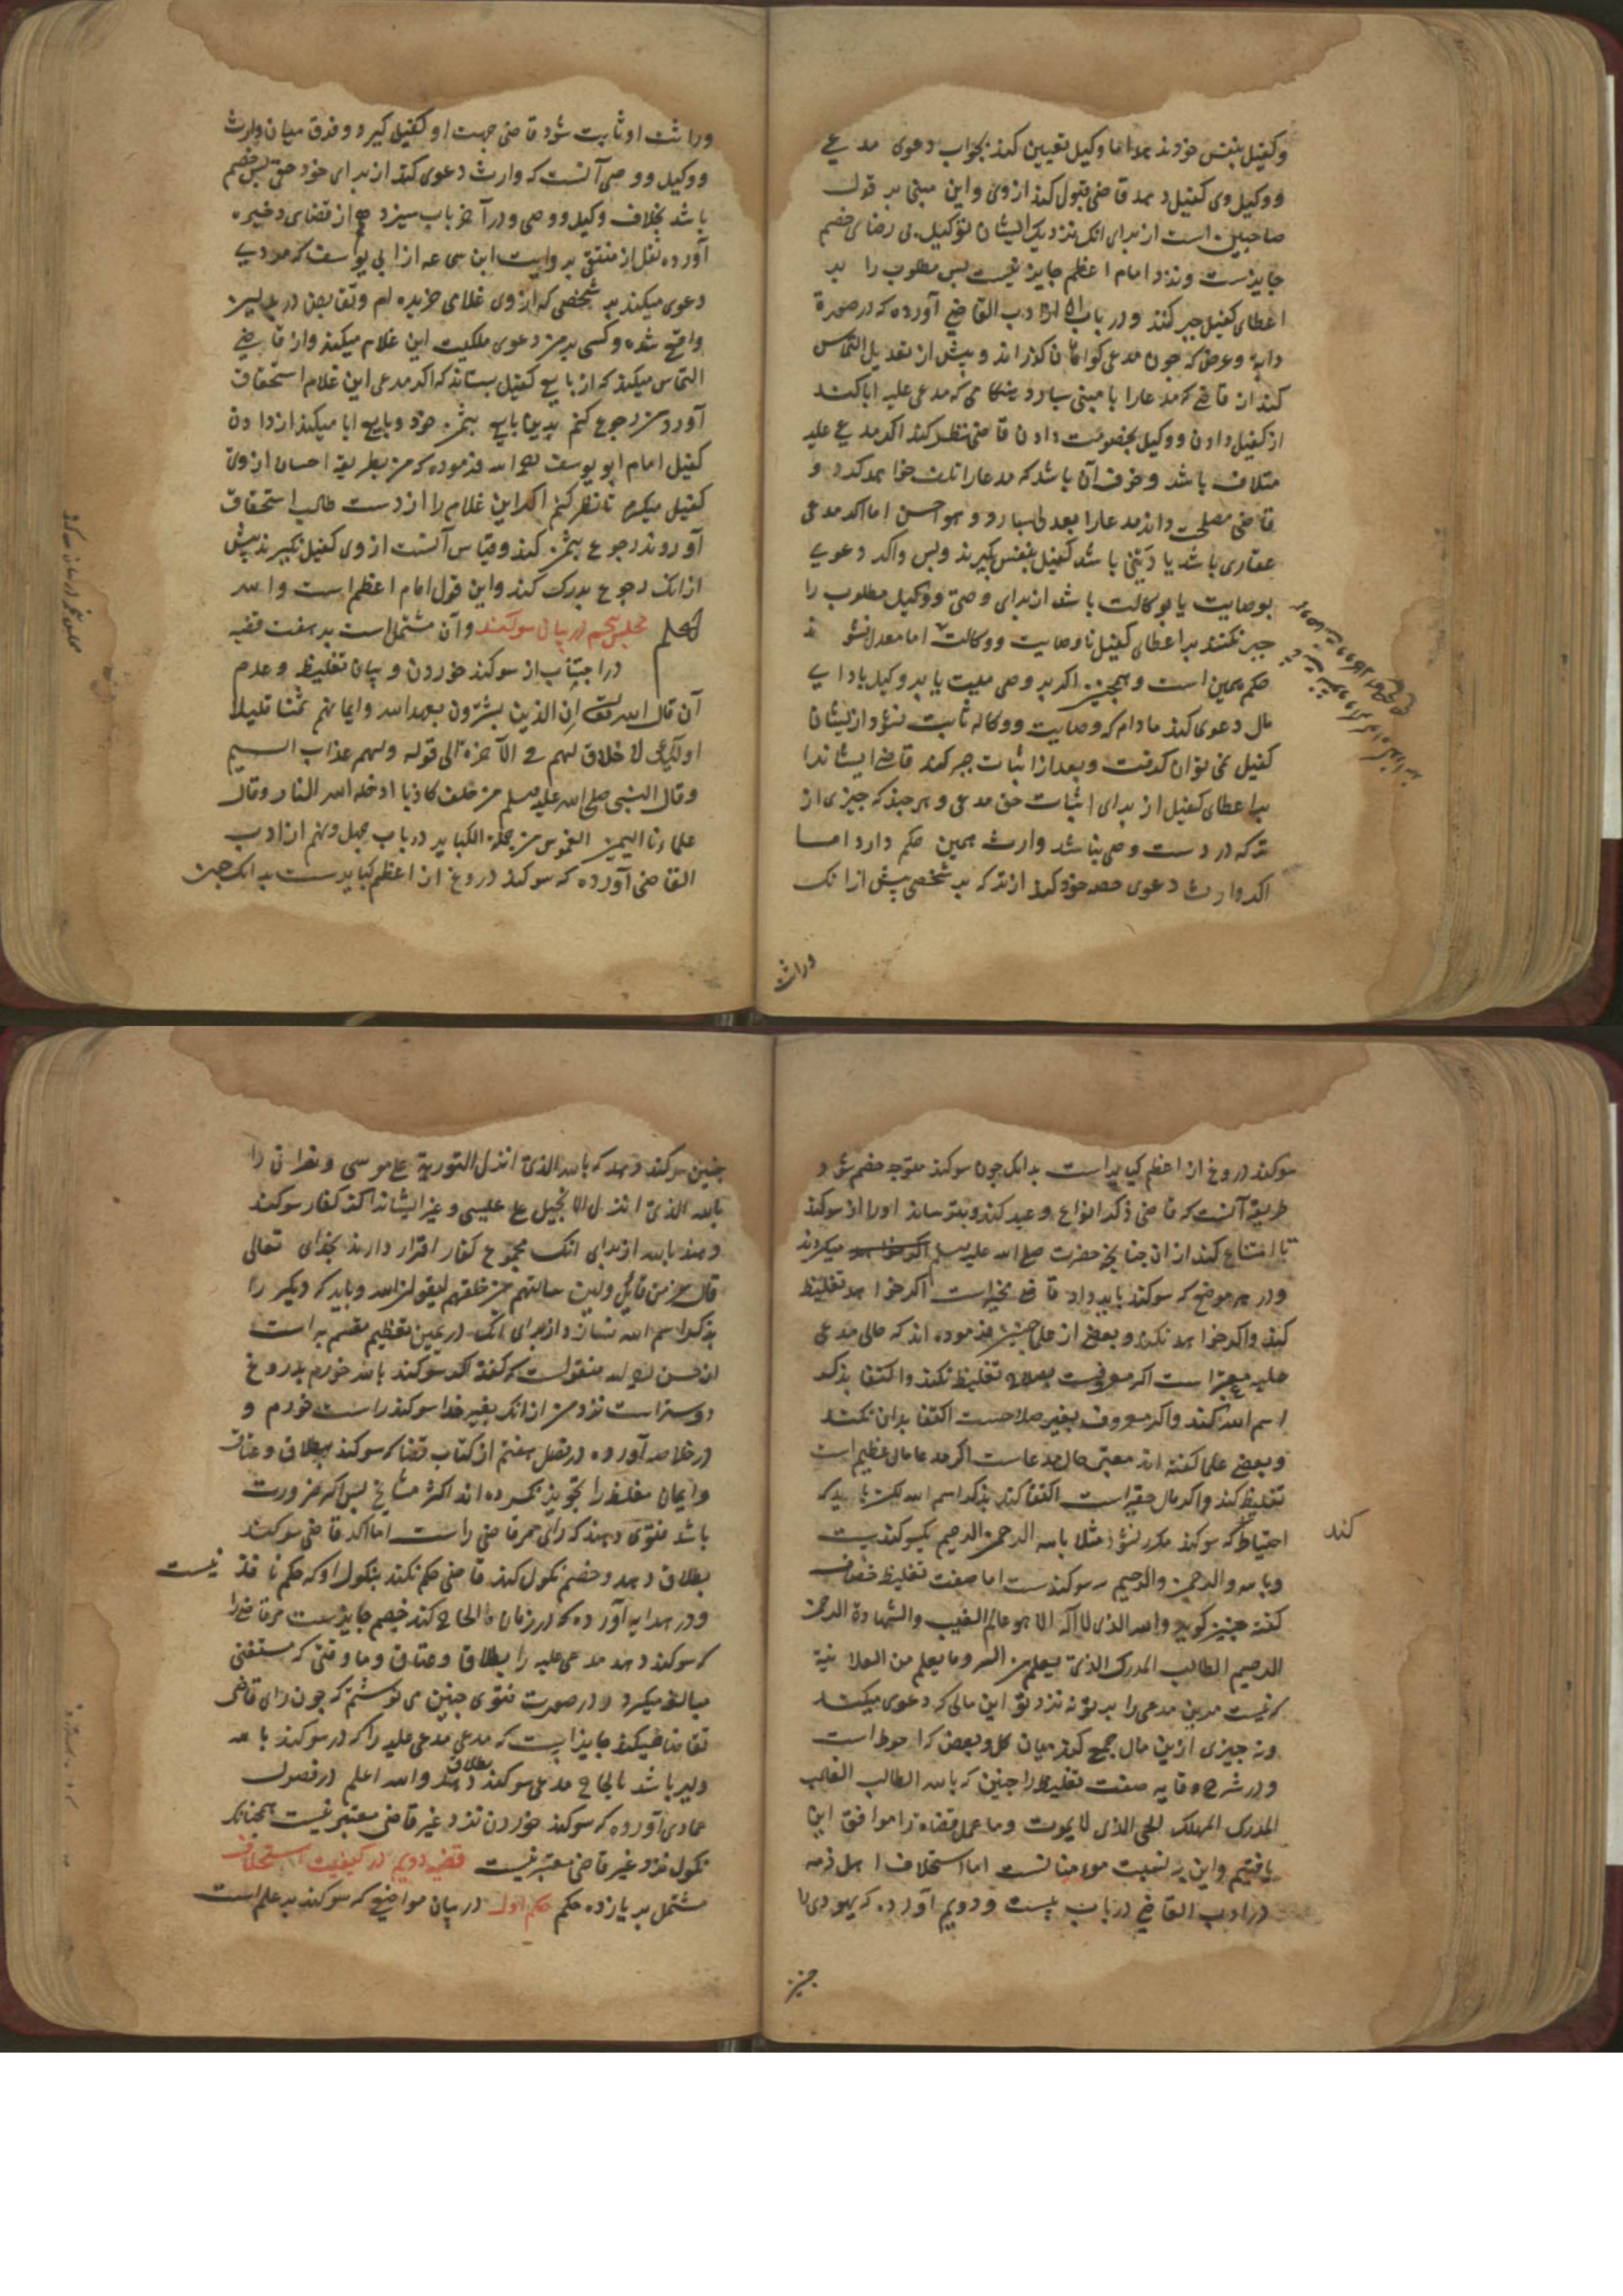 وکفیل بنفس خود ندهد اما وکیل تعیین کند بجواب دعوی مدعی
ووکیل وی کفیل دهد قاضی قبول کند ازوی واین مبنی بر قول
صاحبین است از برای انک نزدیک ایشان توکیل بی رضای خصم
جایزست ونزد امام اعظم جایز نیست پس مطلوب را بر
اعطای کفیل جبر کنند ودر باب ادب القاضی آورده که درصورة
دابه وعرض که چون مدعی کواهان کذراند وپیش از تعدیل التماس
کند از قاضی که مدعارا بامینی سپارد هنکامی که مدعی علیه ابا کند
از کفیل دادن ووکیل بخصومت دادن قاضی نظر کند اکر مدعی علیه
متلاف باشد وخوف آن باشد که مدعارا تلف خواهد کرد و
قاضی مصلحت داند مدعارا بعدلی سپارد وهو احسن اما اکر مدعی
عقاری باشد یا دینی باشد کفیل بنفس کیرند وبس واکر دعوی
بوصایت یا بوکالت باشد از برای وصی ووکیل مطلوب را
جبر نکنند بر اعطای کفیل تا وصایت ووکالت اما معدل نشود
حکم همین است وهمچنین اکر بر وصی میت یا بر وکیل بادای
مال دعوی کند مادام که وصایت ووکاله ثابت نشود ازیشان
کفیل نمی توان کرفت وبعد از اثبات جبر کند قاضی ایشانرا
بر اعطای کفیل از برای اثبات حق مدعی وهر چند که چیزی از
ترکه در دست وصی نباشد وارث همین حکم دارد اما
اکر وارث دعوی حصه خود کند از ترکه بر شخصی پیش ازانک
وراثت
وراثت او ثابت شود قاضی جهت او کفیل کیرد وفرق میان وارث
ووکیل ووصی آنست که وارث دعوی کند از برای خود حق پس خصم
باشد بخلاف وکیل ووصی ودر آخر باب سیزدهم از قضای ذخیره
آورده نقل از منتقی بروایت ابن سماعه از ابی یوسف که مردی
دعوی میکند بر شخصی که ازوی غلامی خریده ام وتقابض در بدلین
واقع شده وکسی بر من دعوی ملکیت این غلام میکند واز قاضی
التماس میکند که از بایع کفیل بستاند که اکر مدعی این غلام استحقاق
آورد من رجوع کنم بدین بایع بثمن خود وبایع ابا میکند از دادن
کفیل امام ابو یوسف رحمه الله فرموده که من بطریقه احسان ازوی
کفیل میکیرم تا نظر کنم اکر این غلام را از دست طالب استحقاق
آوردند رجوع بثمن کند وقیاس آنست ازوی کفیل نکیرند پیش
ازانک رجوع بدرک کند واین قول امام اعظم است والله
اعلم مجلس پنجم در بیان سوکند وآن مشتمل است بر هفت قضیه
در اجتناب از سوکند خوردن وبیان تغلیظ وعدم
آن قال الله تعالی إن الذین یشترون بعهد الله وایمانهم ثمنا قلیلا
اولئک لا خلاق لهم فی الآخرة الی قوله ولهم عذاب الیم
وقال النبی صلی الله علیه وسلم من حلف کاذبا ادخله الله النار وقال
علماءنا الیمین الغموس من جملة الکبایر در باب چهل ونهم از ادب
القاضی آورده که سوکند دروغ از اعظم کبایرست بدانک چون
سوکند دروغ از اعظم کبایر است بدانک چون سوکند متوجه خصم شود
طریقه آنست که قاضی ذکر انواع وعید کند وبترساند اورا از سوکند
تا امتناع کند از ان چنانچ حضرت صلی الله علیه وسلم میکردند
ودر هر موضع که سوکند باید داد قاضی مخیر است اکر خواهد تغلیظ
کند واکر خواهد نکند وبعضی از علما چنین فرموده اند که حال مدعی
علیه معتبر است اکر معروفست بصلاح تغلیظ نکند واکتفا بذکر
اسم الله کند واکر معروف بغیر صلاحست اکتفا بدان نکند
وبعضی علما کفته اند معتبر حال مدعاست اکر مدعا مال عظیم است
تغلیظ کند واکر مال حقیر است اکتفا کند بذکر اسم الله لکن باید که
احتیاط کند که سوکند مکرر نشود مثلا بالله الرحمن الرحیم یکسوکندیست
وبالله والرحمن والرحیم سه سوکندست اما صفت تغلیظ خصاف
کفته چنین کوید والله الذی لا اله الا هو عالم الغیب والشهادة الرحمن
الرحیم الطالب المدرک الذی یعلم من السر وما یعلم من العلانیة
که نیست مر این مدعی را بر تو نه نزد تو این مالی که دعوی میکند
ونه چیزی ازین مال جمع کند میان کل وبعض که احوط است
ودر شرح وقایه صفت تغلیظ را چنین که بالله الطالب الغالب
المدرک المهلک الحی الذی لا یموت وما عمل قضاه را موافق این
یافتیم واین به نسبت مومنانست اما استحلاف اهل ذمه
در ادب القاضی در باب بیست ودویم آورده که یهودی را
چنین
چنین سوکند دهد که بالله الذی انزل التوریة علی موسی ونصرانی را
بالله الذی انزل الانجیل علی عیسی وغیر ایشانرا اکر کفار سوکند
دهند بالله از برای انک مجموع کفار اقرار دارند بخدای تعالی
قال عز من قایل ولین سالتهم من خلقهم لیقولن الله وباید که دیکر را
بذکر اسم الله نسازد از برای انک در یمین تعظیم مقسم به است
از حسن منقولست که کفته اکر سوکند بالله خورم بدروغ
دوستر است نزد من ازانک بغیر خدا سوکند راست خورم و
در خلاصه آورده در فصل هفتم از کتاب قضا که سوکند بطلاق وعتاق
وایمان مغلظه را تجویز نکرده اند اکثر مشایخ پس اکر ضرورت
باشد فتوی دهند که رای مر قاضی راست اما اکر قاضی سوکند
بطلاق دهد وخصم نکول کند قاضی حکم نکند بنکول او که حکم نافذ نیست
ودر هدایه آورده که در زمان ما الحاح کند خصم جایزست مر قاضی را
که سوکند دهد مدعی علیه را بطلاق وعتاق وما وقتی که مستفتی
مبالغه میکرد در صورت فتوی چنین می نوشتم که چون رای قاضی
تقاضا میکند جایز است که مدعی مدعی علیه را که در سوکند بالله
دلیر باشد بالحاح مدعی سوکند بطلاق دهد والله اعلم در فصول
عمادی آورده که سوکند خوردن نزد غیر قاضی معتبر نیست همچنانکه
نکول نزد غیر قاضی معتبر نیست قضیه دویم در کیفیت استحلاف
مشتمل بر یازده حکم حکم اول در بیان مواضعی که سوکند بر علم است